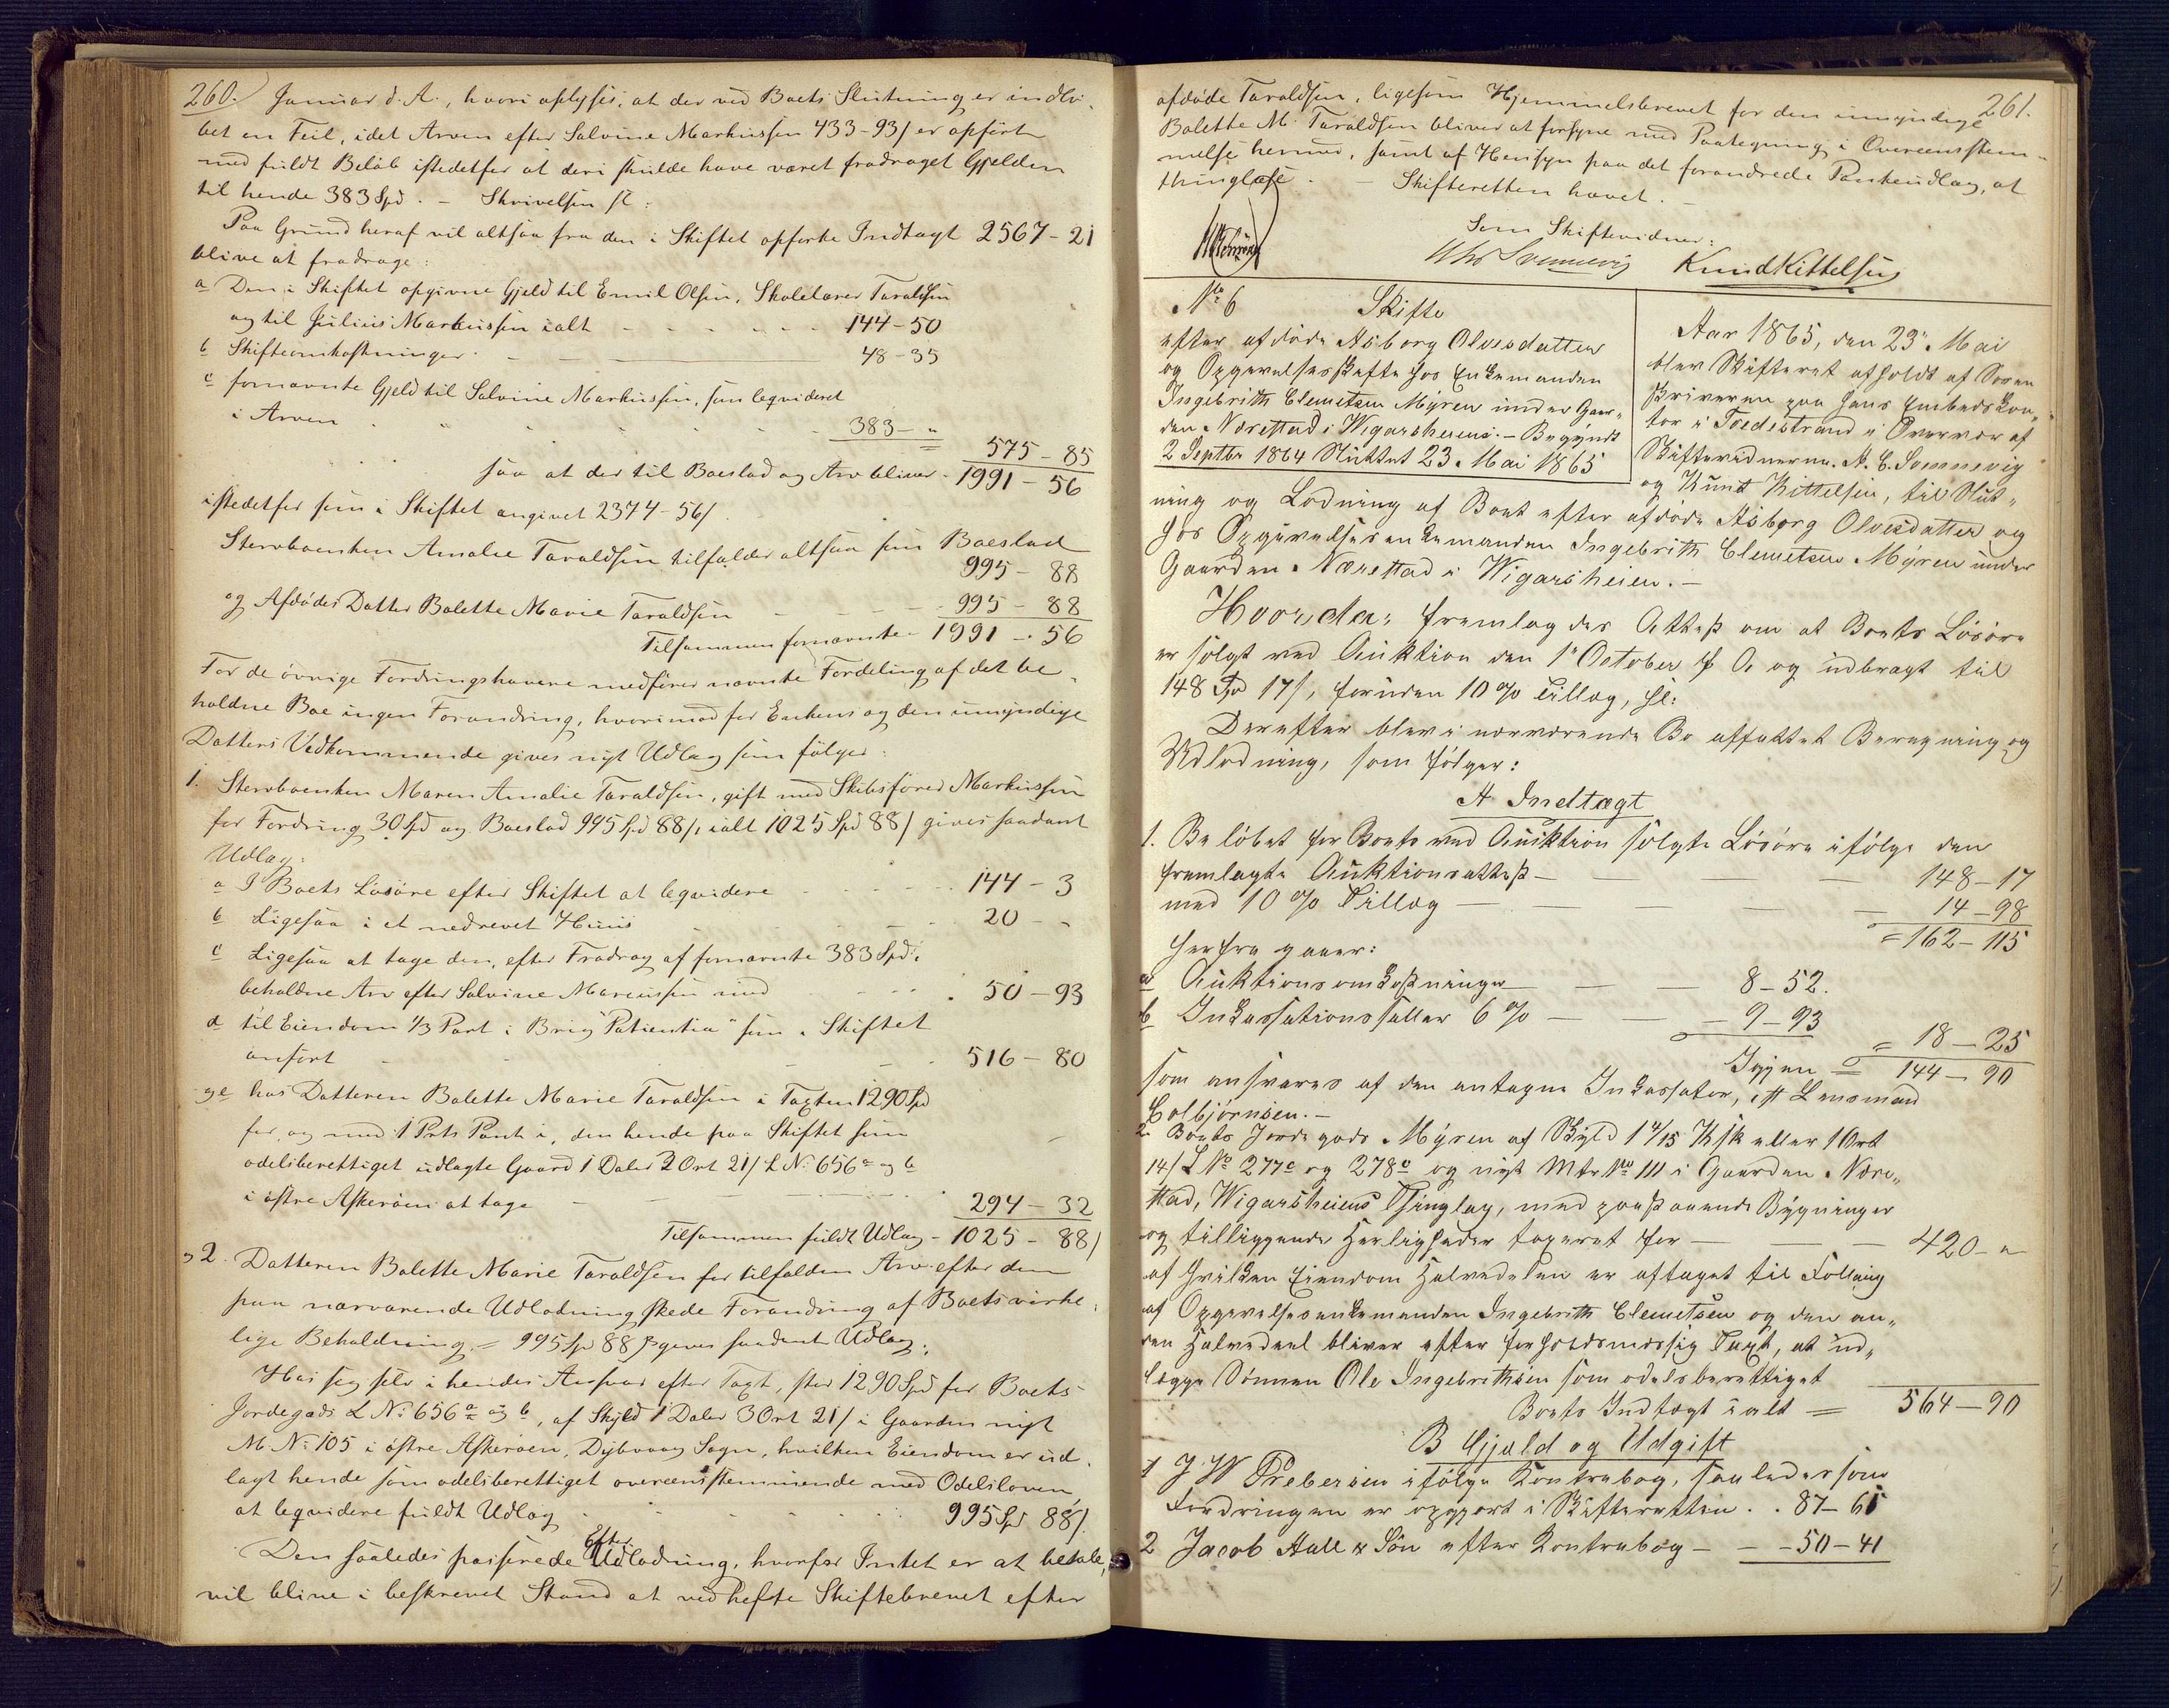 260. Januar d. A., hvori oplyses, at der ved Boets Slutning er indlø-
bet en Feil, idet Arven efter Salvine Markussen 433-93/ er opført
med fuldt Beløb istedetfor at deri skulde have været fradraget Gjelden
til hende 383 Spd. - Skrivelsen fl:
Paa Grund heraf vil altsaa fra den i Skiftet opførte Indtægt 2567-21
blive at fradrage:
a Den i Skiftet opgivne Gjeld til Emil Olsen, Skolelærer Taraldsen
og til Julius Markussen ialt - - - 144-50
b Skifteomkostninger - 48-35
c fornævnte Gjeld til Salvine Markussen, som liqvideret
i Arven - - 383 - "
575 - 85
saa at der til Boeslod og Arv bliver - 1991 - 56
istedetfor som i Skiftet angivet 2374-56/
Stervboenken Amalie Taraldsen tilfalder altsaa som Boeslod
995 - 88
og Afdødes Datter Bolette Marie Taraldsen - - - 995 - 88
Tilsammen fornævnte - 1991 - 56
For de øvrige Fordringshavere medfører nævnte Fordeling af det be-
holdne Boe ingen Forandring, hvorimod for Enkens og den umyndige
Datters Vedkommende gives nyt Udlæg som følger:
1. Stervboenken Maren Amalie Taraldsen, gift med Skibsfører Markussen
for Fordring 30 Spd og Boeslod 995 Spd 88/, ialt 1025 Spd 88/ gives saadant
Udlæg:
a I Boets Løsøre efter Skiftet at liqvidere - - - 144 - 3
b Ligesaa i et nedrevet Huus - - 20 - -
c Ligesaa at tage den, efter Fradrag af fornævnte 383 Spd,
beholdne Arv efter Salvine Marcussen med - - 50 - 93
d til Eiendom 1/3 Part i Brig "Patientia" som i Skiftet
anført - - - 516 - 80
og e hos Datteren Bolette Marie Taraldsen i Taxten 1290 Spd
for, og med 1 Prts Pant i, den hende paa Skiftet som
odelsberettiget udlagte Gaard 1 Daler 3 Ort 21/ L No 656 a og b
i østre Askerøen at tage - - - 294 - 32
Tilsammen fuldt Udlæg - 1025 - 88/
2. Datteren Bolette Marie Taraldsen for tilfalden Arv efter den
paa nærværende Udlodning skede Forandring af Boets virke-
lige Beholdning = 995 Sp 88 ß gives saadant Udlæg:
Hos sig selv i hendes Ansvar efter Taxt, stor 1290 Spd for Boets
Jordegods L No: 656 a og b, af Skyld 1 Daler 3 Ort 21/ i Gaarden nyt
M No: 105 i østre Askerøen, Dybvaag Sogn, hvilken Eiendom er ud-
lagt hende som odelsberettiget overeensstemmende med Odelsloven,
at liqvidere fuldt Udlæg - - - 995 Spd 88/.
Den saaledes passerede Efter Udlodning, hvorfor Intet er at betale,
vil blive i beskrevet Stand at vedhefte Skiftebrevet efter
261.
afdøde Taraldsen, ligesom Hjemmelsbrevet for den umyndige
Bolette M. Taraldsen bliver at forsyne med Paategning i Overeensstem-
melse hermed, samt af Hensyn paa det forandrede Panteudlæg, at
thinglæse. - Skifteretten hævet. -
Som Skiftevidner:
Knud Kittelsen
No 6 Skifte
efter afdøde Asborg Olvesdatter
og Opgivelsesskifte hos Enkemanden
Ingebrith Clemetsen Myren under Gaar-
den Nærestad i Wigarsheien. - Begyndt
2 Septbr 1864 Sluttet 23 Mai 1865
Aar 1865, den 23de Mai
blev Skifteret afholdt af Soren-
skriveren paa hans Embedskon-
tor i Tvedestrand i Overvær af
Skiftevidnerne A. C. Sonnevig
og Knud Kittelsen, til Slut-
ning og Lodning af Boet efter afdøde Asborg Olvesdatter og
hos Opgivelsesenkemanden Ingebrith Clemetsen Myren under
Gaarden Nærestad i Wigarsheien. -
Hvorda: fremlagdes Attest om at Boets Løsøre
er solgt ved Auktion den 1de October f A og indbragt til
148 Spd 17/, foruden 10 % Tillæg, fl:
Derefter blev i nærværende Bo affattet Beregning og
Udlodning, som følger:
A Indtægt
1. Beløbet for Boets ved Auktion solgte Løsøre ifølge den
fremlagte Auktionsattest - - - 148-17
med 10 % Tillæg - - - 14-98
= 162-115
Herfra gaaer:
a Auktionsomkostninger - - 8-52.
b Inkassationssallær 6 % - - 9-93
= 18-25
Igjen = 144-90
som ansvares af den antagne Inkassator, Lensmand
Colbjørnsen. -
2. Boets Jordegods Myren af Skyld 1 4/15 Kjk eller 1 Ort
14/ L No 277c og 278c og nyt Mtr No 111 i Gaarden Nære-
stad, Wigarsheiens Thinglag, med paastaaende Bygninger
og tilliggende Herligheder taxeret for - - - 420 - "
af hvilken Eiendom Halvedelen er aftaget til Følling
af Opgivelsesenkemanden Ingebrith Clemetsen og den an-
den Halvedeel bliver efter forholdsmæssig Taxt, at ud-
lægge Sønnen Ole Ingebrithsen som odelsberettiget
Boets Indtægt ialt = 564-90
B Gjæld og Udgift
1 J W Prebensen ifølge Kontrabog, saaledes som
Fordringen er opgjort i Skifteretten . . 87-65
2 Jacob Aall & Søn efter Kontrabog - - - 50-41